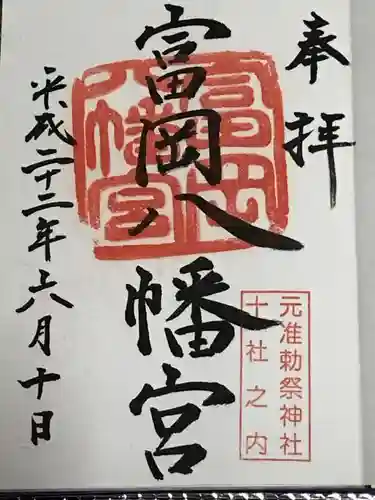 奉拝
富岡八幡宮
富岡
八幡宮
元准勅祭神社
十社之内
平成二十二年六月十日